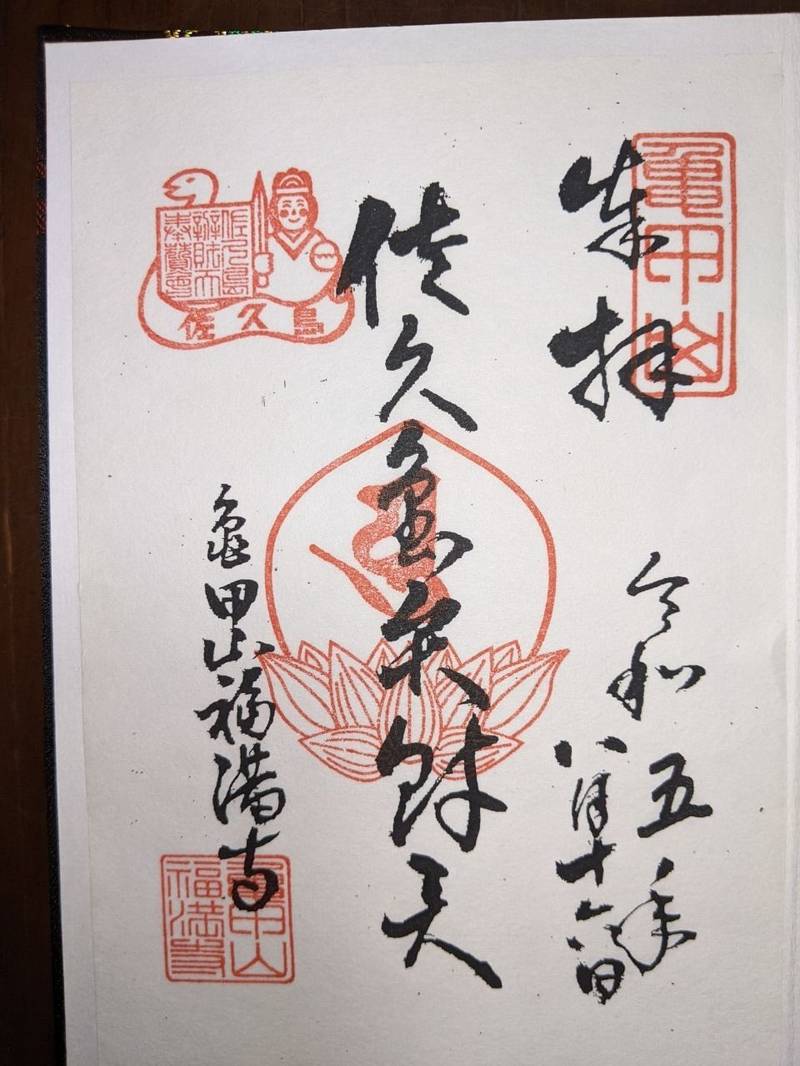 龜甲山
奉拝
令和五年
八月十六日
佐久島弁財天
佐久島
辯財天
奉賛會
佐久島
亀甲山福満寺
亀甲山
福満寺